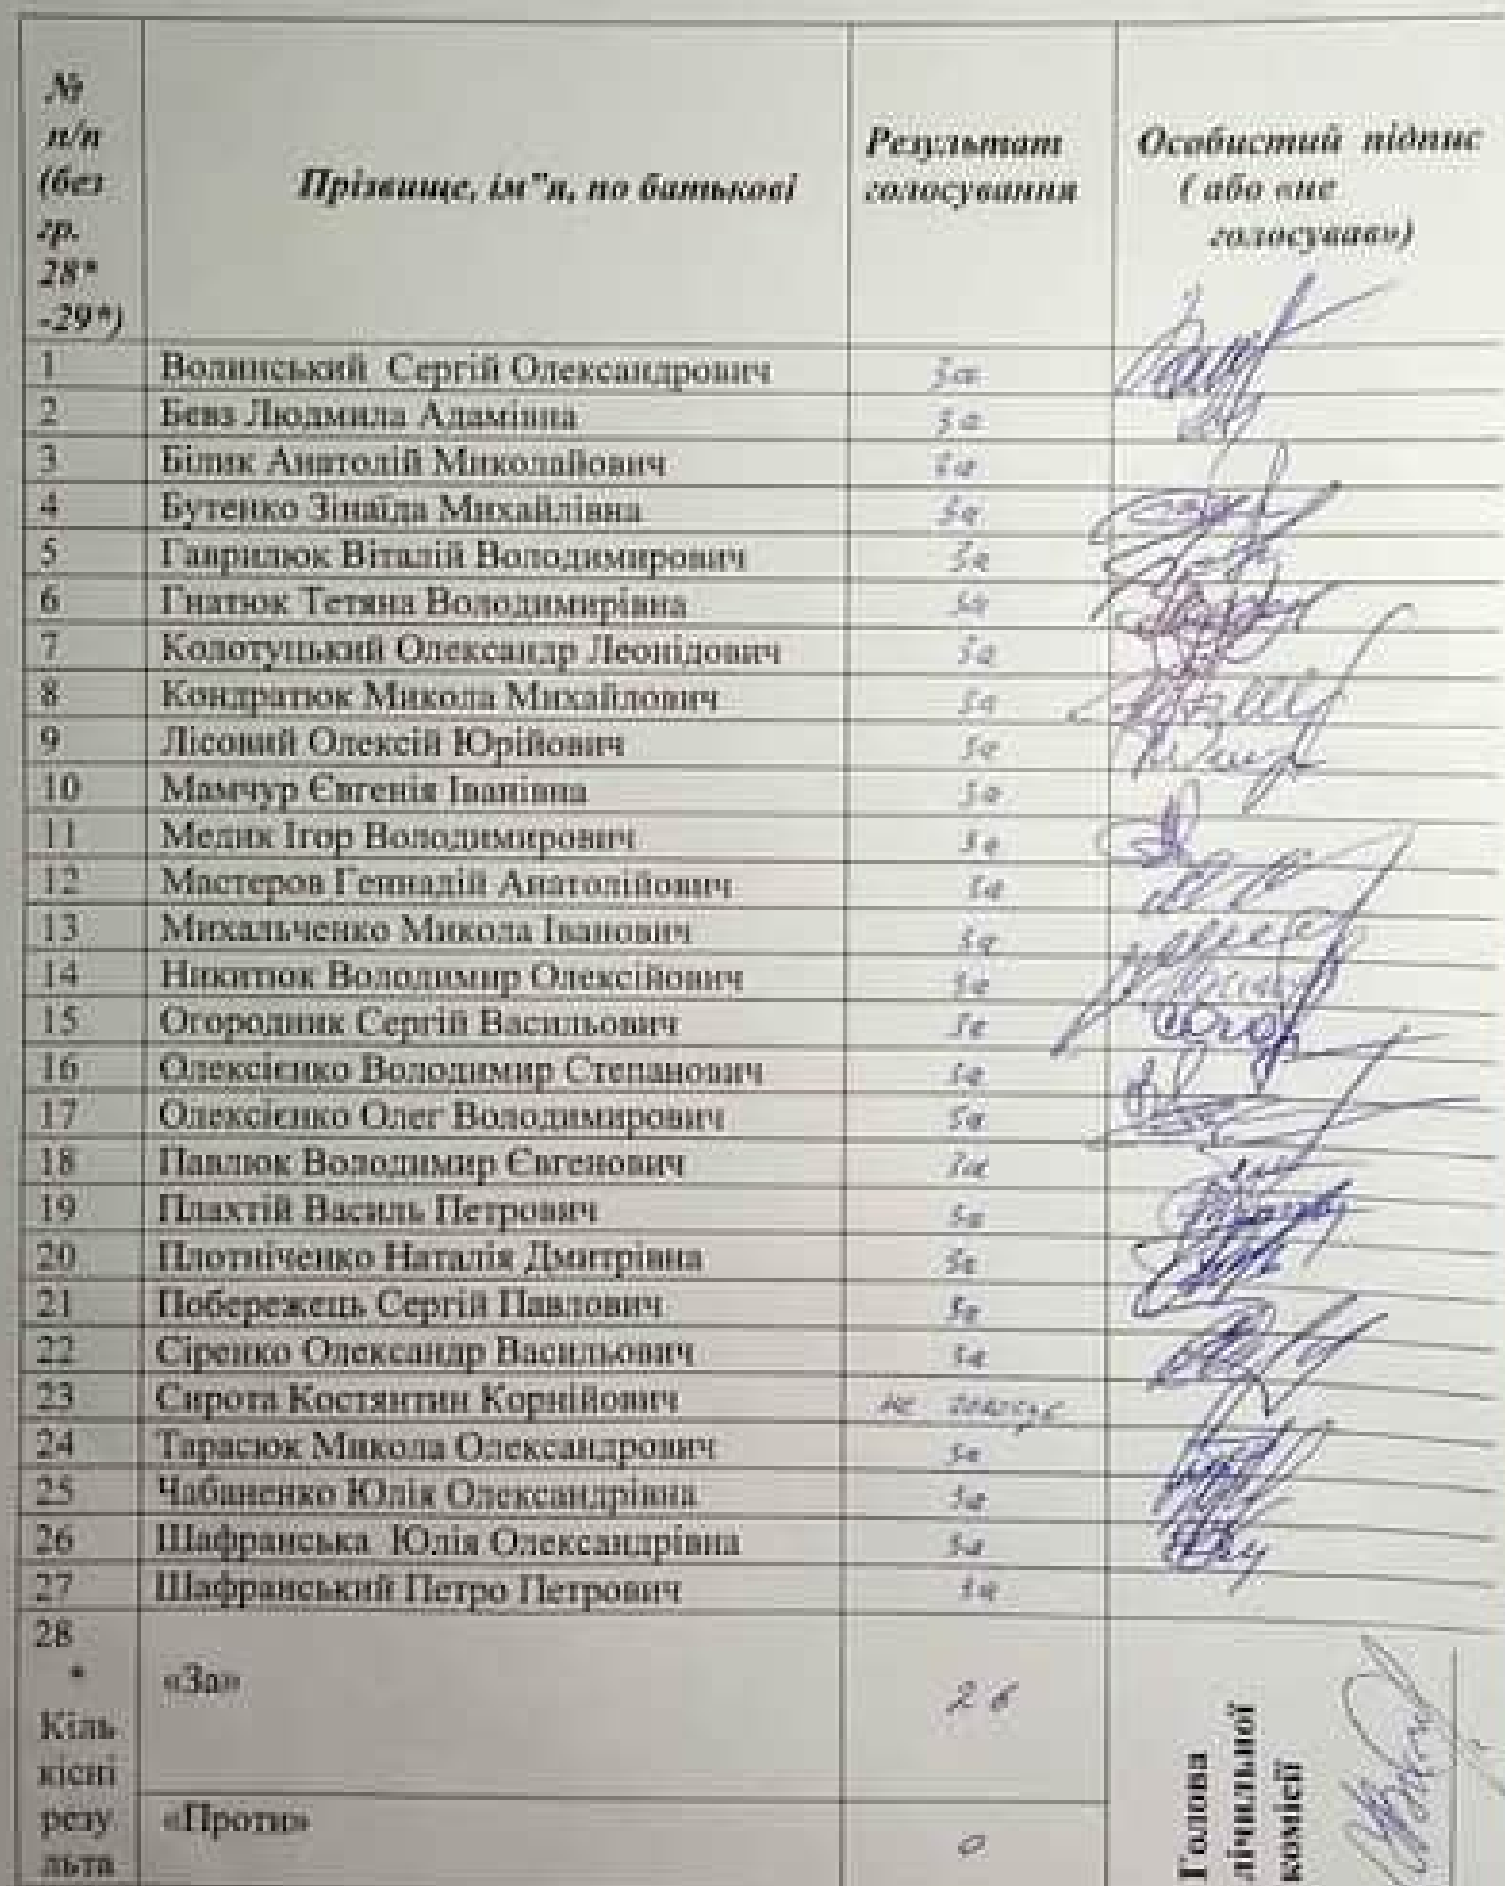 №
п/п
(без
гр.
28*
-29*)
Прізвище, ім"я, по батькові
Результат
голосування
Особистий підпис
( або «не
голосував»)
1 Волинський Сергій Олександрович За
2 Бевз Людмила Адамівна За
3 Білик Анатолій Миколайович За
4 Бутенко Зінаїда Михайлівна За
5 Гаврилюк Віталій Володимирович За
6 Гнатюк Тетяна Володимирівна За
7 Колотуцький Олександр Леонідович За
8 Кондратюк Микола Михайлович За
9 Лісовий Олексій Юрійович За
10 Мамчур Євгенія Іванівна За
11 Медик Ігор Володимирович За
12 Мастеров Геннадій Анатолійович За
13 Михальченко Микола Іванович За
14 Никитюк Володимир Олексійович За
15 Огородник Сергій Васильович За
16 Олексієнко Володимир Степанович За
17 Олексієнко Олег Володимирович За
18 Павлюк Володимир Євгенович За
19 Плахтій Василь Петрович За
20 Плотніченко Наталія Дмитрівна За
21 Побережець Сергій Павлович За
22 Сіренко Олександр Васильович За
23 Сирота Костянтин Корнійович не голосує
24 Тарасюк Микола Олександрович За
25 Чабаненко Юлія Олександрівна За
26 Шафранська Юлія Олександрівна За
27 Шафранський Петро Петрович За
28
*
Кіль
кісні
резу
льта
«За» 26
«Проти» 0
Голова
лічильної
комісії